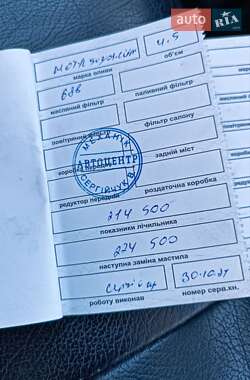 AUTO RIA
4.5
марка оливи
об'єм
масляний фільтр
паливний фільтр
повітряний фільтр
фільтр салону
МЕХАНІК
АВТОЦЕНТР
СЕРГІЙЧУК
коробка передач
задній міст
редуктор передній
роздаточна коробка
214 500
показники лічильника
224 500
наступна заміна мастила
30.10.21
роботу виконав
номер серв.кн.